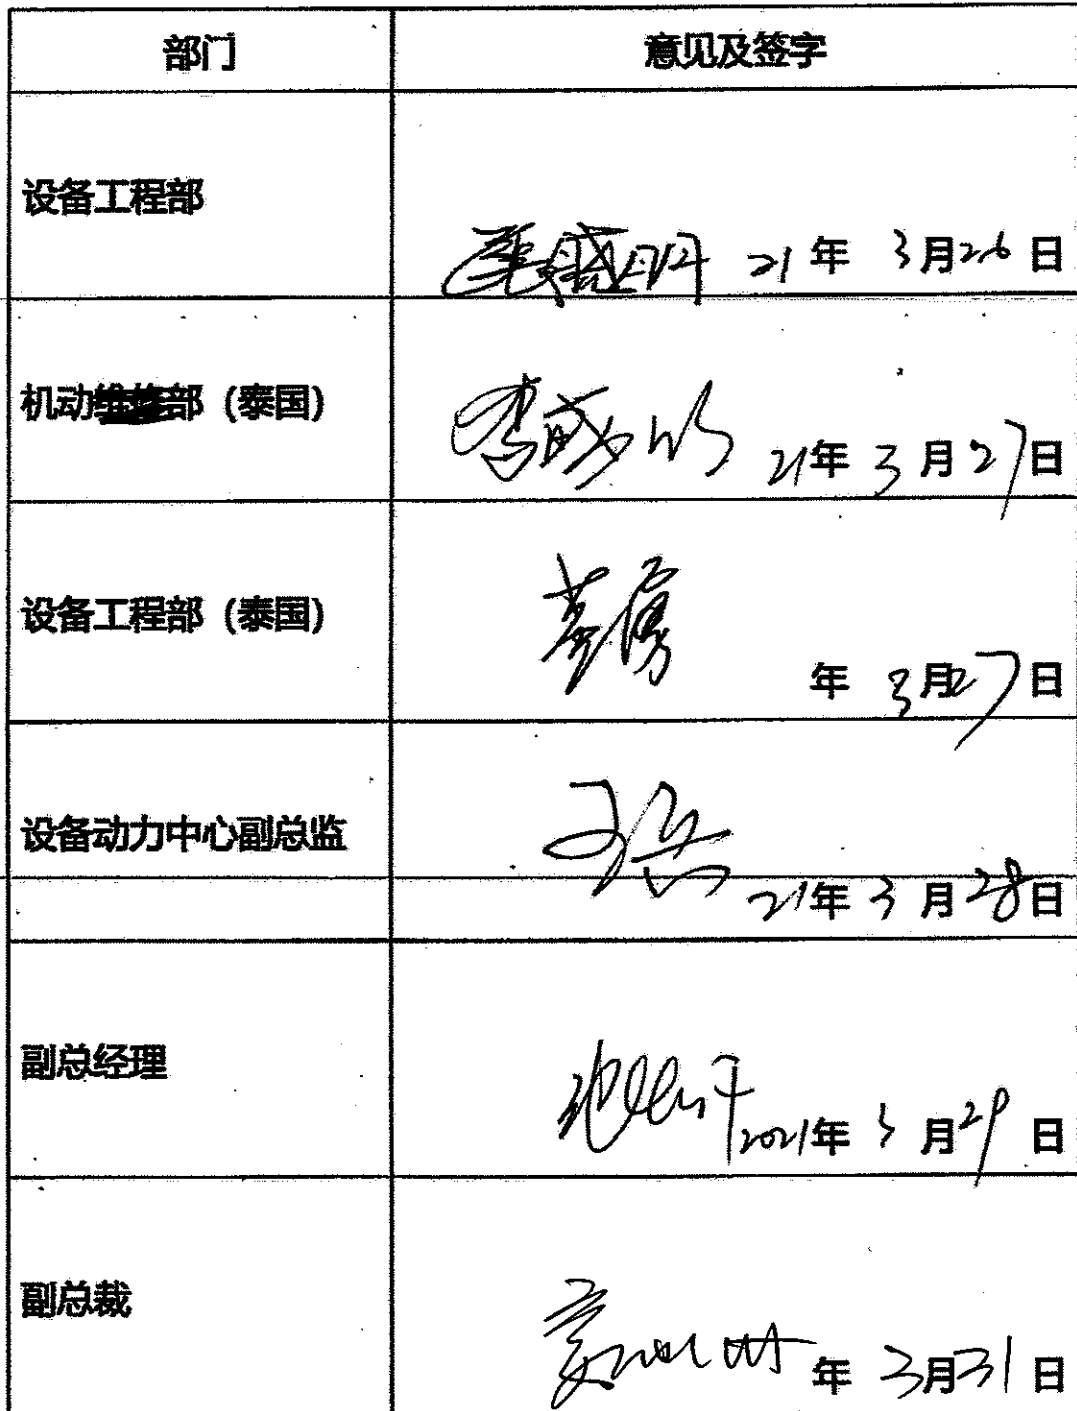 部门 意见及签字
设备工程部
21年 3月26日
机动维修部（泰国）
21年 3月27日
设备工程部（泰国）
年 3月27日
设备动力中心副总监
21年 3月28日
副总经理
2021年 3月29日
副总裁
年 3月31日